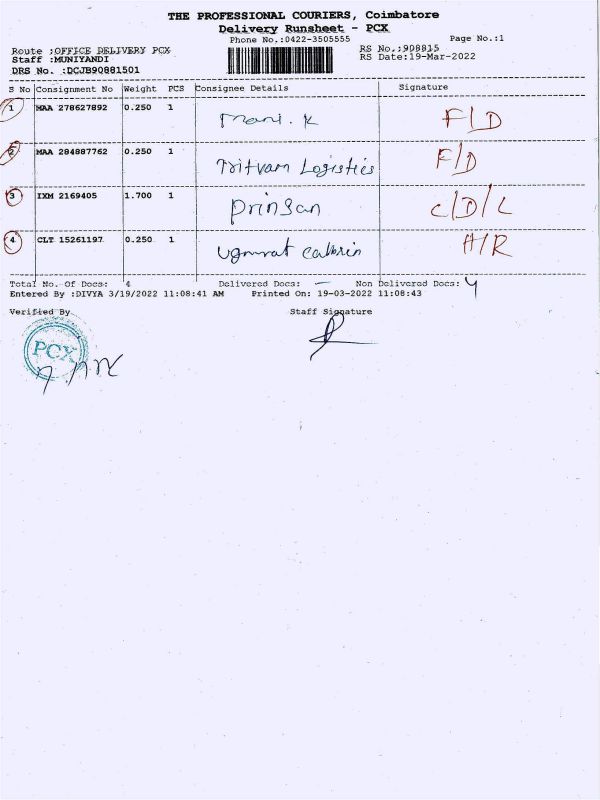 THE PROFESSIONAL COURIERS, Coimbatore
Delivery Runsheet - PCX
Phone No.:0422-3505555
Page No.:1
Route :OFFICE DELIVERY PCX
RS No.:908815
Staff :MUNIYANDI
RS Date:19-Mar-2022
DRS No. :DCJB90881501
S No Consignment No Weight PCS Consignee Details Signature
1 MAA 278627892 0.250 1 Mani. K F/D
2 MAA 284887762 0.250 1 Logistics F/D
3 IXM 2169405 1.700 1 Prinsan C/D/L
4 CLT 15261197 0.250 1 A/R
Total No. Of Docs: 4 Delivered Docs: — Non Delivered Docs: 4
Entered By :DIVYA 3/19/2022 11:08:41 AM Printed On: 19-03-2022 11:08:43
Verified By Staff Signature
PCX